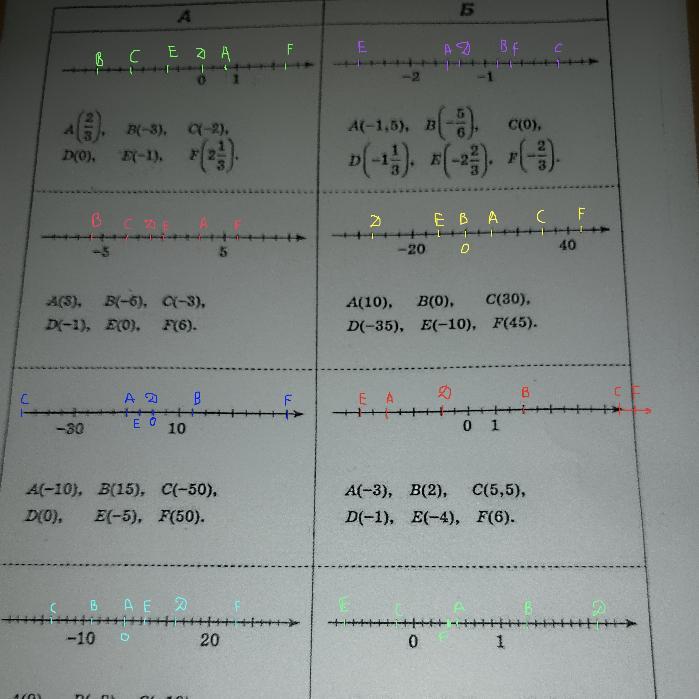 А Б
B C E D A F
0 1
A(2/3), B(−3), C(−2),
D(0), E(−1), F(2 1/3).
E A D B F C
−2 −1
A(−1,5), B(−5/6), C(0),
D(−1 1/3), E(−2 2/3), F(−2/3).
B C D E A F
−5 5
A(3), B(−6), C(−3),
D(−1), E(0), F(6).
D E B A C F
−20 0 40
A(10), B(0), C(30),
D(−35), E(−10), F(45).
C A D B F
−30 E 0 10
A(−10), B(15), C(−50),
D(0), E(−5), F(50).
E A D B C F
0 1
A(−3), B(2), C(5,5),
D(−1), E(−4), F(6).
C B A E D F
−10 0 20
E C A B D
0 F 1